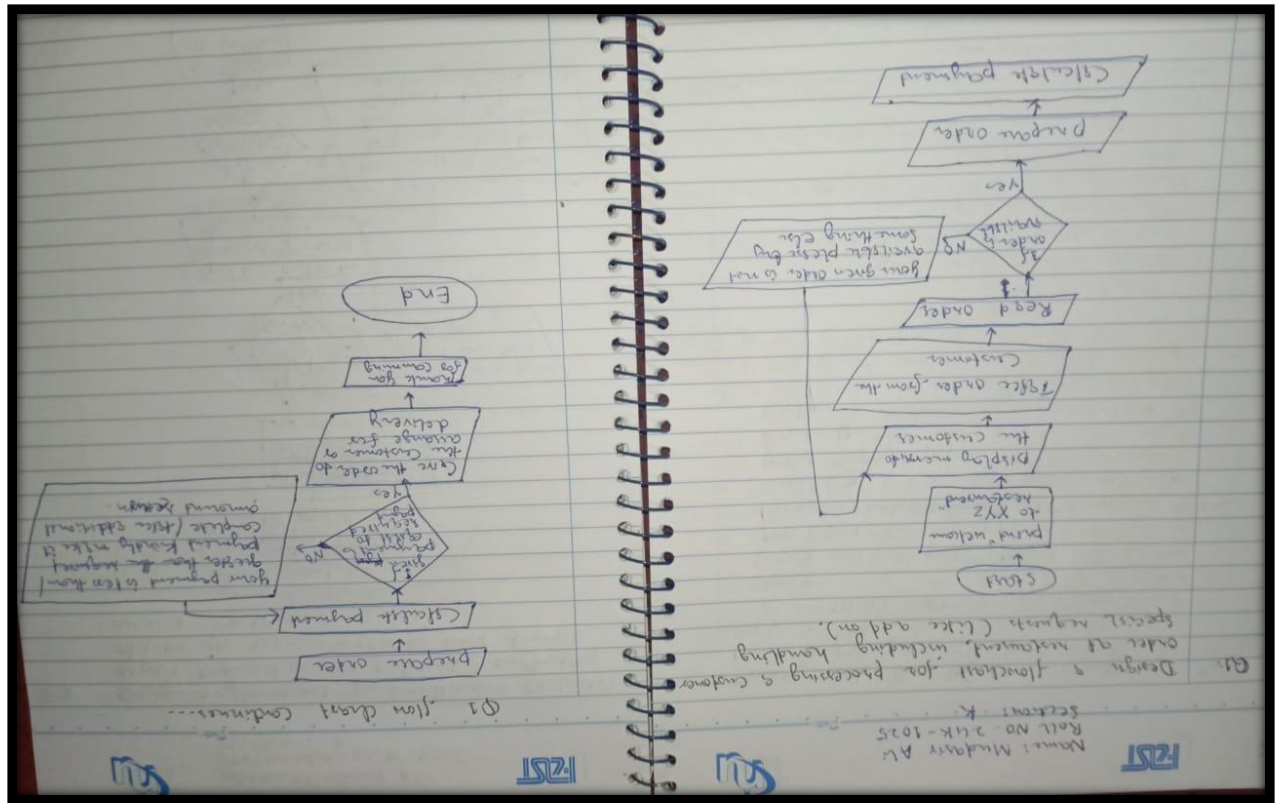 FAST
Name: Mudasir Ali
Roll No 24K-1025
Section: K
Q1: Design a flowchart for processing a customer
order at restaurant, including handling
special requests (like add on).
Start
print "welcome
to XYZ
restaurant"
Display menu to
the customer
Take order from the
Customer
Read order
If
order is
available
NO
your given order is not
available please try
something else
yes
prepare order
Calculate payment
FAST
Q1 flow chart continues....
prepare order
Calculate payment
If
given
payment is
equal to
required
NO
your payment is less than/
greater than the required
payment kindly make it
complete / take additional
amound return
Yes
Give the order to
the customer or
arrange for
delivery
Thank you
for comming
End